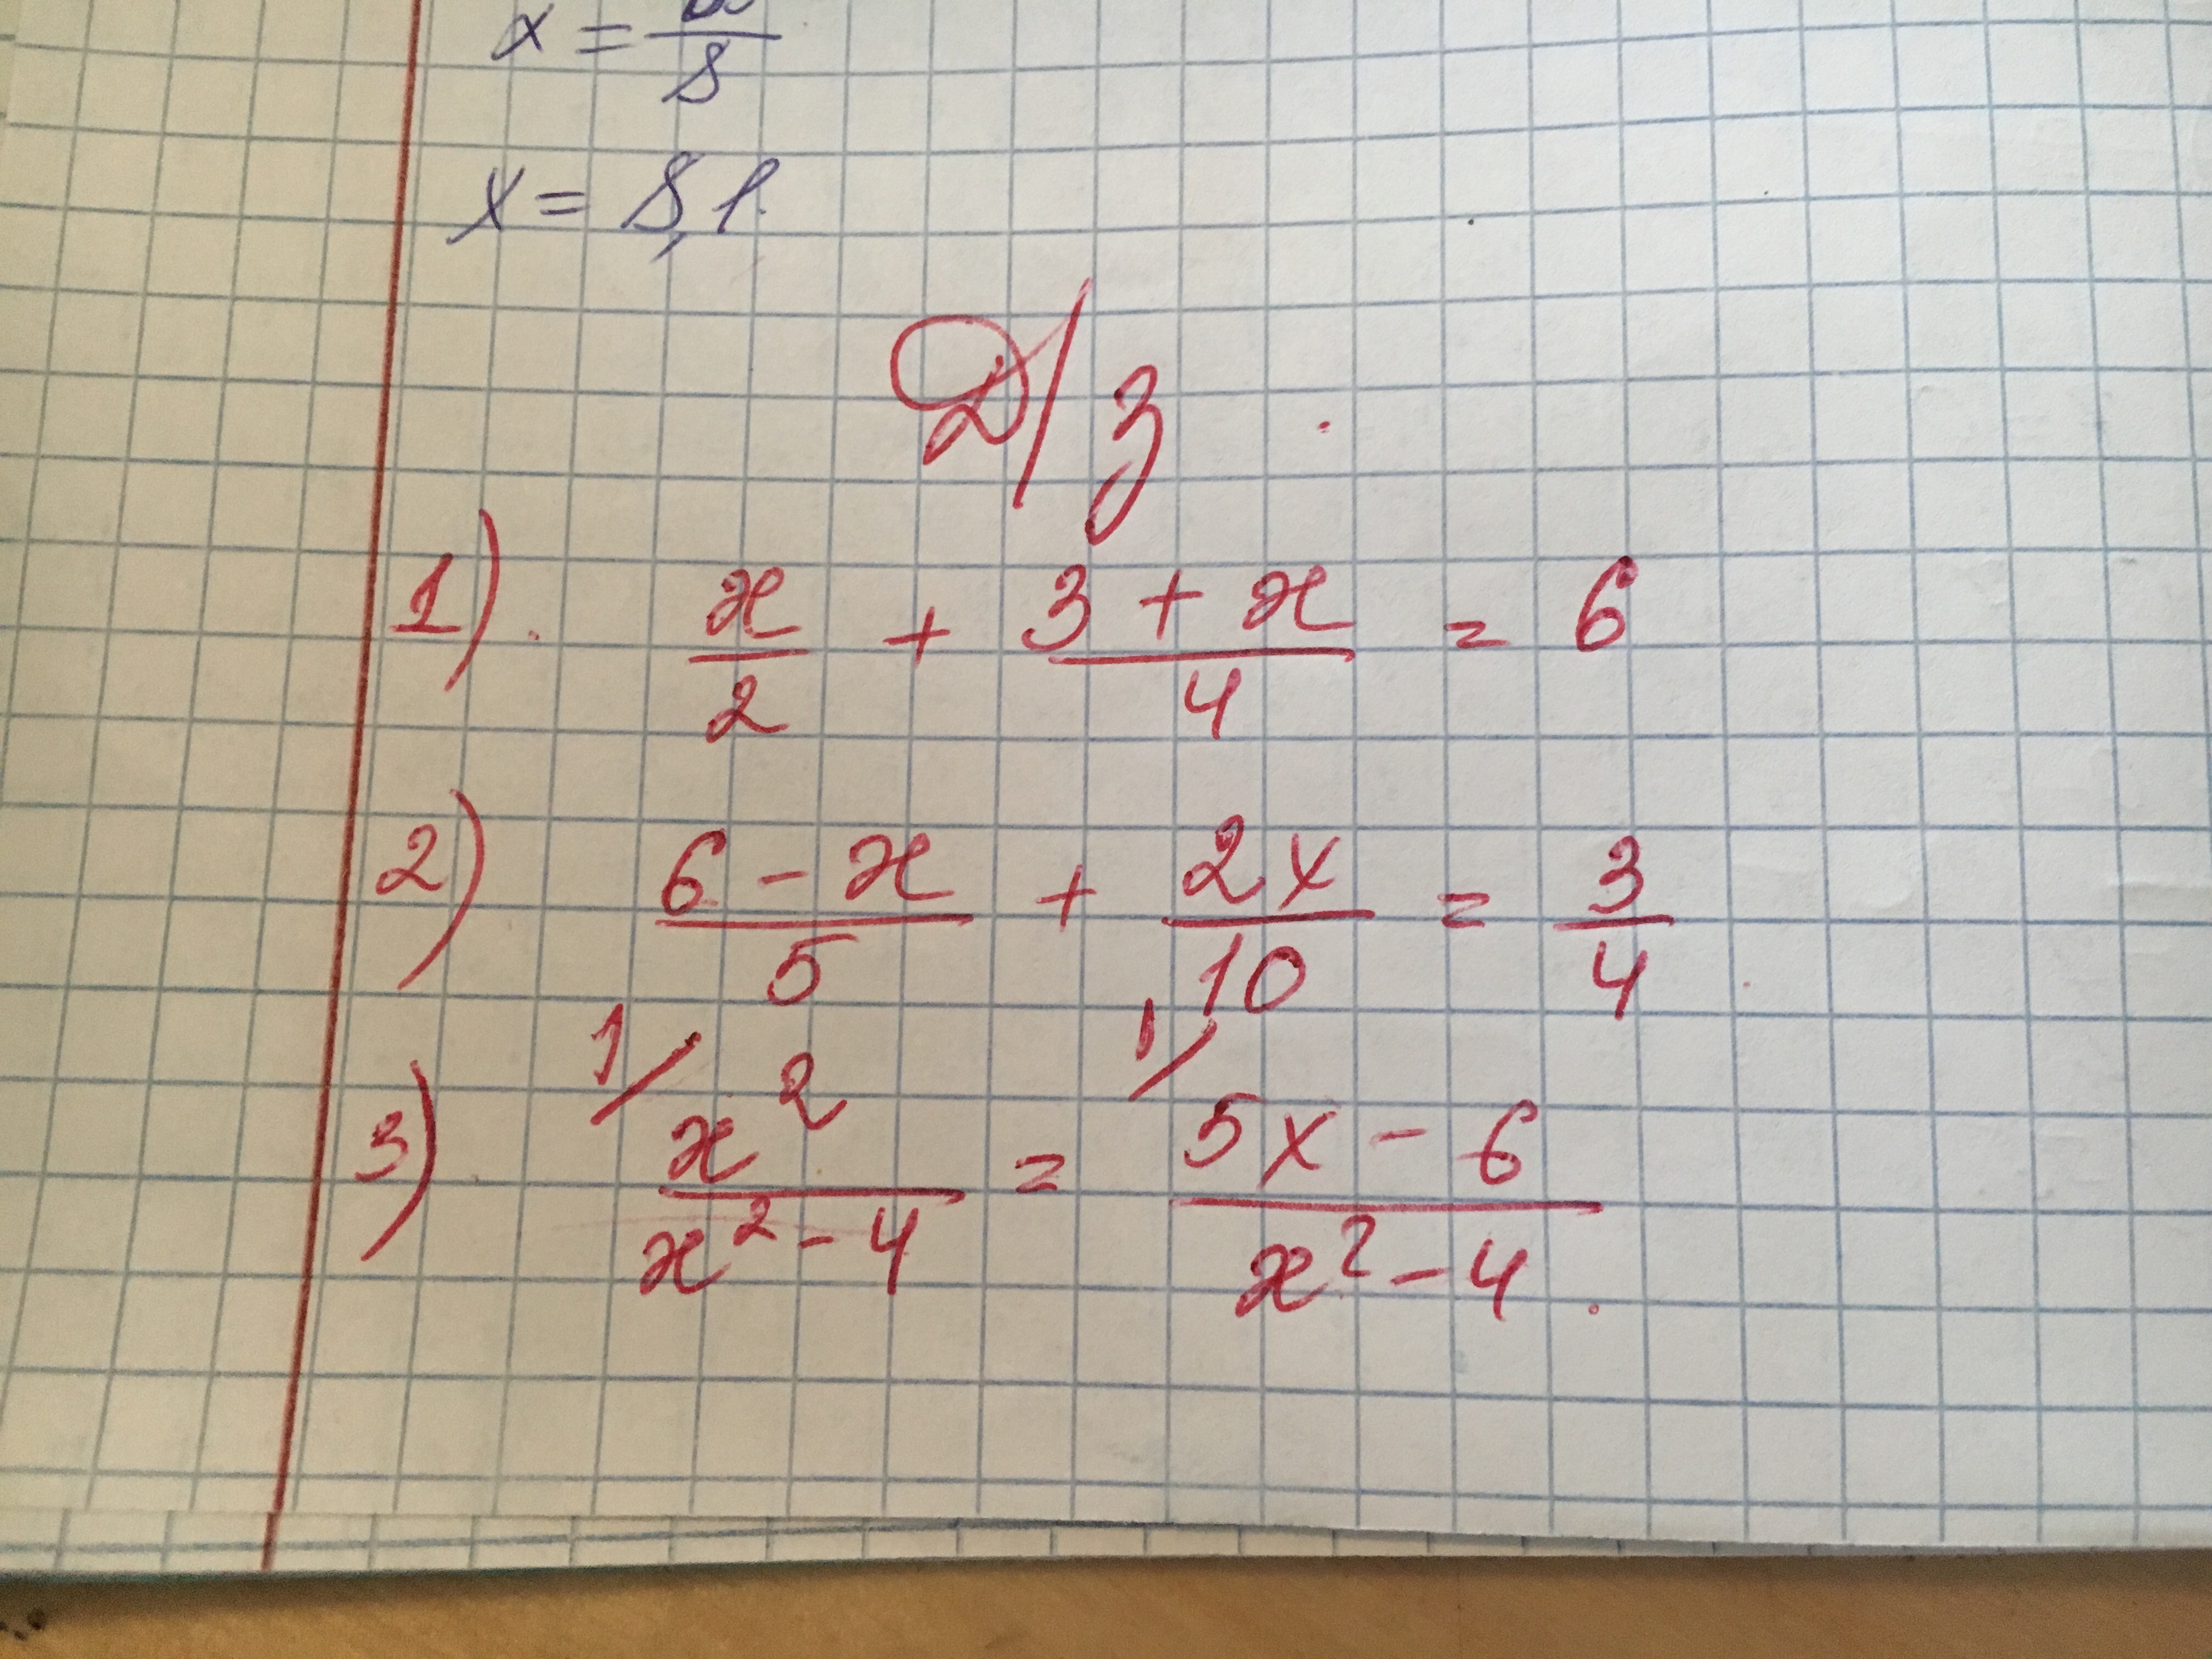 x = 8
x = 8,1.
Д/з.
1). x/2 + (3 + x)/4 = 6
2) (6 - x)/5 + 2x/10 = 3/4.
3). 1/ x²/(x² - 4) = 1/ (5x - 6)/(x² - 4).